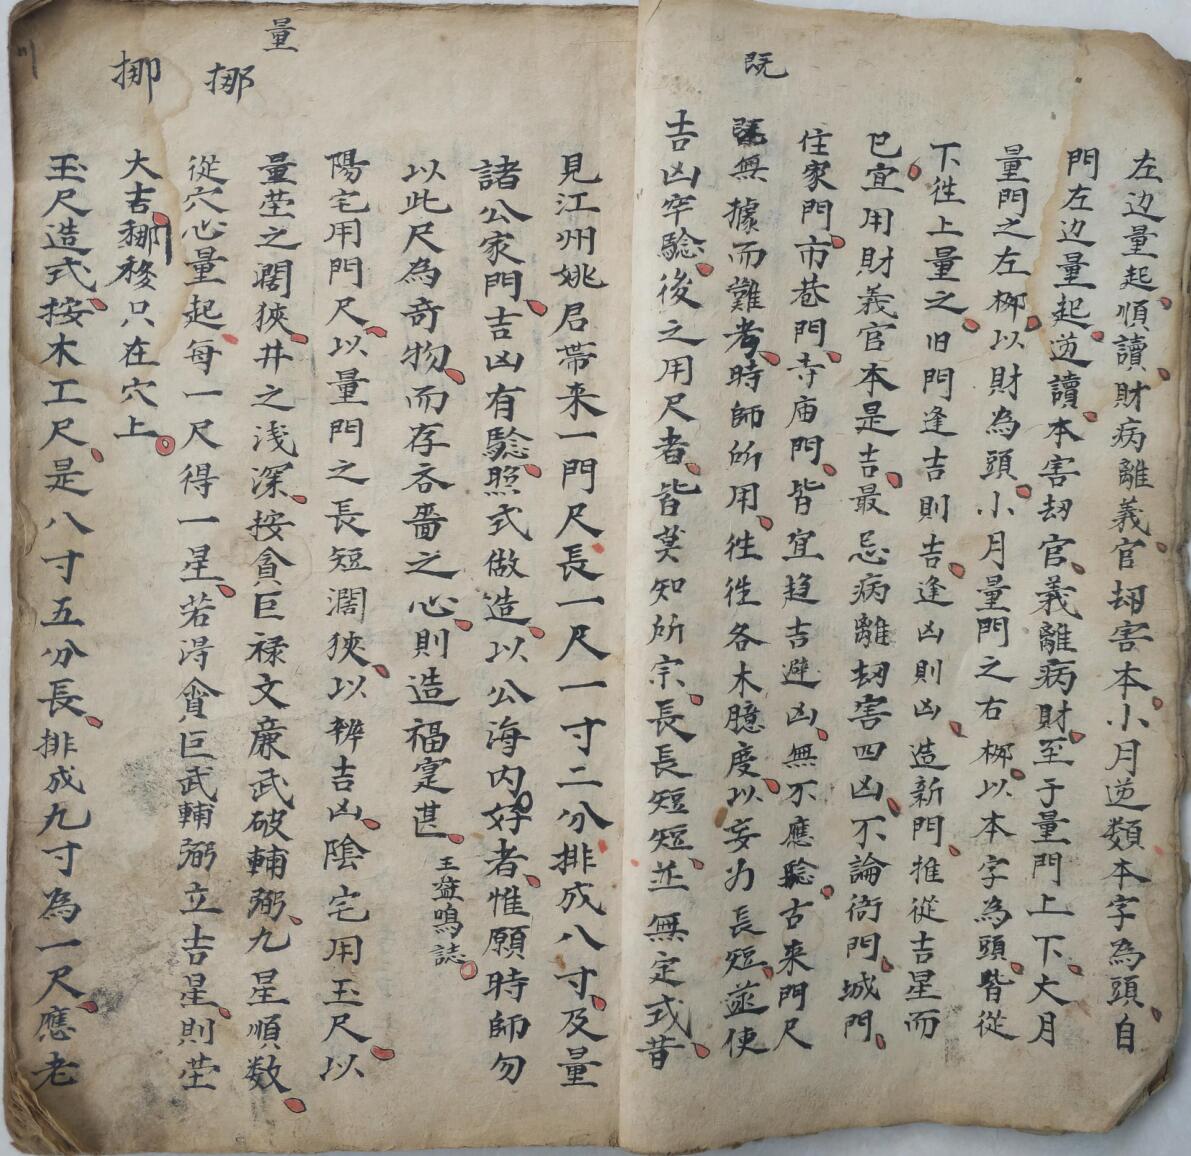 既
左边量起順讀財病離義官刼害本小月逆類本字為頭自
門左边量起逆讀本害刼官義離病財至于量門上下大月
量門之左梛以財為頭小月量門之右梛以本字為頭皆從
下徃上量之旧門逢吉則吉逢凶則凶造新門推從吉星而
已宜用財義官本是吉最忌病離刼害四凶不論衙門城門
住家門市巷門寺庙門皆宜趋吉避凶無不應騐古来門尺
既無據而難考時師所用徃徃各木臆度以妄為長短並使
吉凶罕騐後之用尺者皆莫知所宗長長短短並無定式昔
量
挪
挪
見江州姚君带来一門尺長一尺一寸二分排成八寸及量
諸公家門吉凶有騐照式做造以公海内好者惟願時師勿
以此尺為奇物而存吝嗇之心則造福寔甚王益鳴誌
陽宅用門尺以量門之長短濶狹以辨吉凶陰宅用玉尺以
量茔之濶狹井之浅深按貪巨禄文廉武破輔弼九星順数
從穴心量起每一尺得一星若淂貪巨武輔弼立吉星則茔
大吉挪移只在穴上
玉尺造式按木工尺是八寸五分長排成九寸為一尺應老